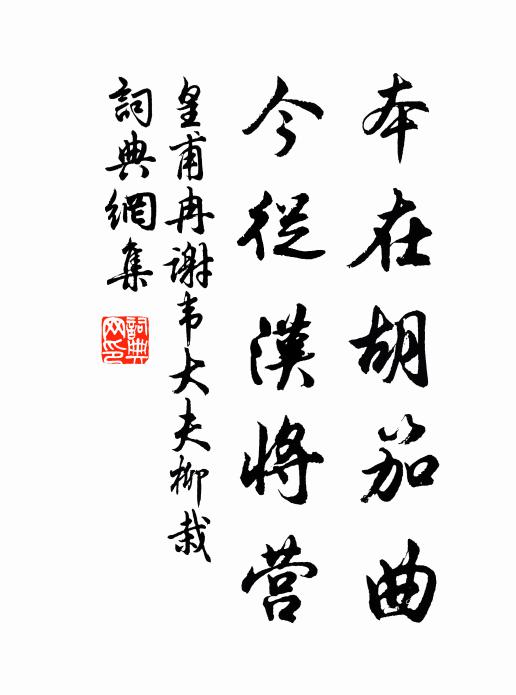 本在胡笳曲
今從漢將营
皇甫冉谢韦大夫柳栽
詞典網集
詞典网印